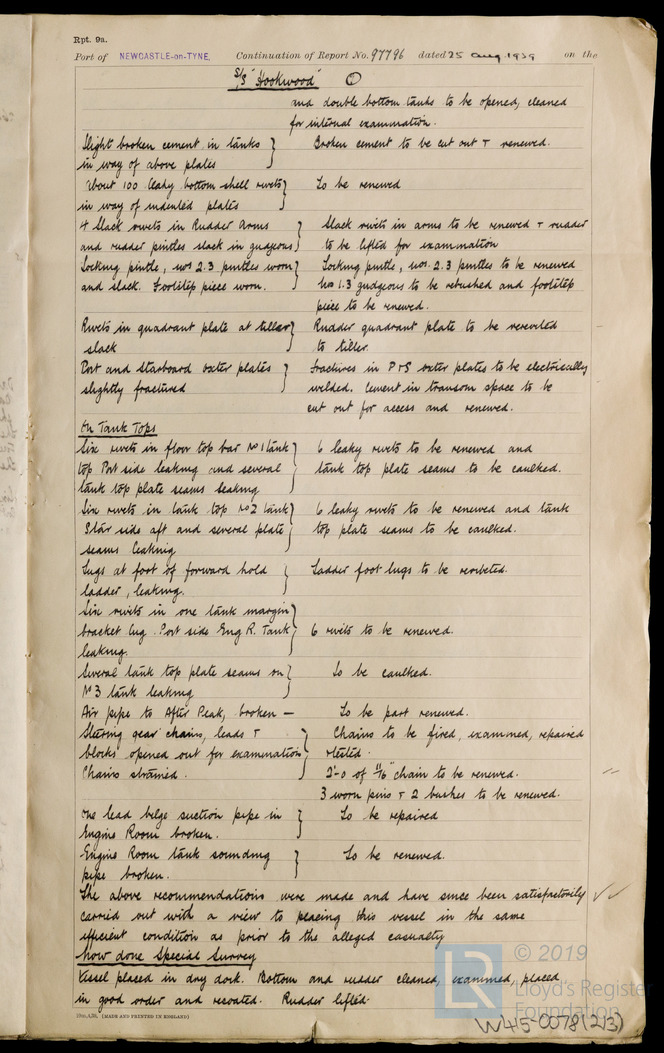 Rpt. 9a.
Port of NEWCASTLE-on-TYNE. Continuation of Report No. 97796 dated 25 Aug. 1939 on the
S/S "Hookwood"
and double bottom tanks to be opened, cleaned
for internal examination.
Slight broken cement in tanks } Broken cement to be cut out + renewed.
in way of above plates
About 100 leaky bottom shell rivets } To be renewed
in way of indented plates
4 Slack rivets in Rudder Arms } Slack rivets in arms to be renewed + rudder
and rudder pintles slack in gudgeons } to be lifted for examination
Locking pintle, nos 2.3 pintles worn } Locking pintle, nos. 2.3 pintles to be renewed
and slack. Footstep piece worn. } Nos 1.3 gudgeons to be rebushed and footstep
piece to be renewed.
Rivets in quadrant plate at tiller } Rudder quadrant plate to be reriveted
slack to tiller.
Port and starboard oxter plates } Fractures in P+S oxter plates to be electrically
slightly fractured welded. Cement in transom space to be
cut out for access and renewed.
On Tank Tops
Six rivets in floor top bar No 1 tank } 6 leaky rivets to be renewed and
top Port side leaking and several tank top plate seams to be caulked.
tank top plate seams leaking
Six rivets in tank top No 2 tank } 6 leaky rivets to be renewed and tank
Star side aft and several plate top plate seams to be caulked.
seams leaking
Lugs at foot of forward hold } Ladder foot lugs to be reriveted.
ladder, leaking.
Six rivets in one tank margin }
bracket lug. Port side Eng R. Tank 6 rivets to be renewed.
leaking.
Several tank top plate seams on } To be caulked.
No 3 tank leaking
Air pipe to After Peak, broken — To be part renewed.
Steering gear chains, leads + } Chains to be fired, examined, repaired
blocks opened out for examination +tested.
Chains strained. 2'-0 of 11/16" chain to be renewed.
3 worn pins + 2 bushes to be renewed.
One lead bilge suction pipe in } To be repaired
Engine Room broken.
Engine Room tank sounding } To be renewed.
pipe broken.
The above recommendations were made and have since been satisfactorily
carried out with a view to placing this vessel in the same
efficient condition as prior to the alleged casualty
Now done Special Survey
Vessel placed in dry dock. Bottom and rudder cleaned, examined, placed
in good order and recoated. Rudder lifted.
(MADE AND PRINTED IN ENGLAND)
© 2019
LR
Lloyd's Register
Foundation
W45-0078(2/3)